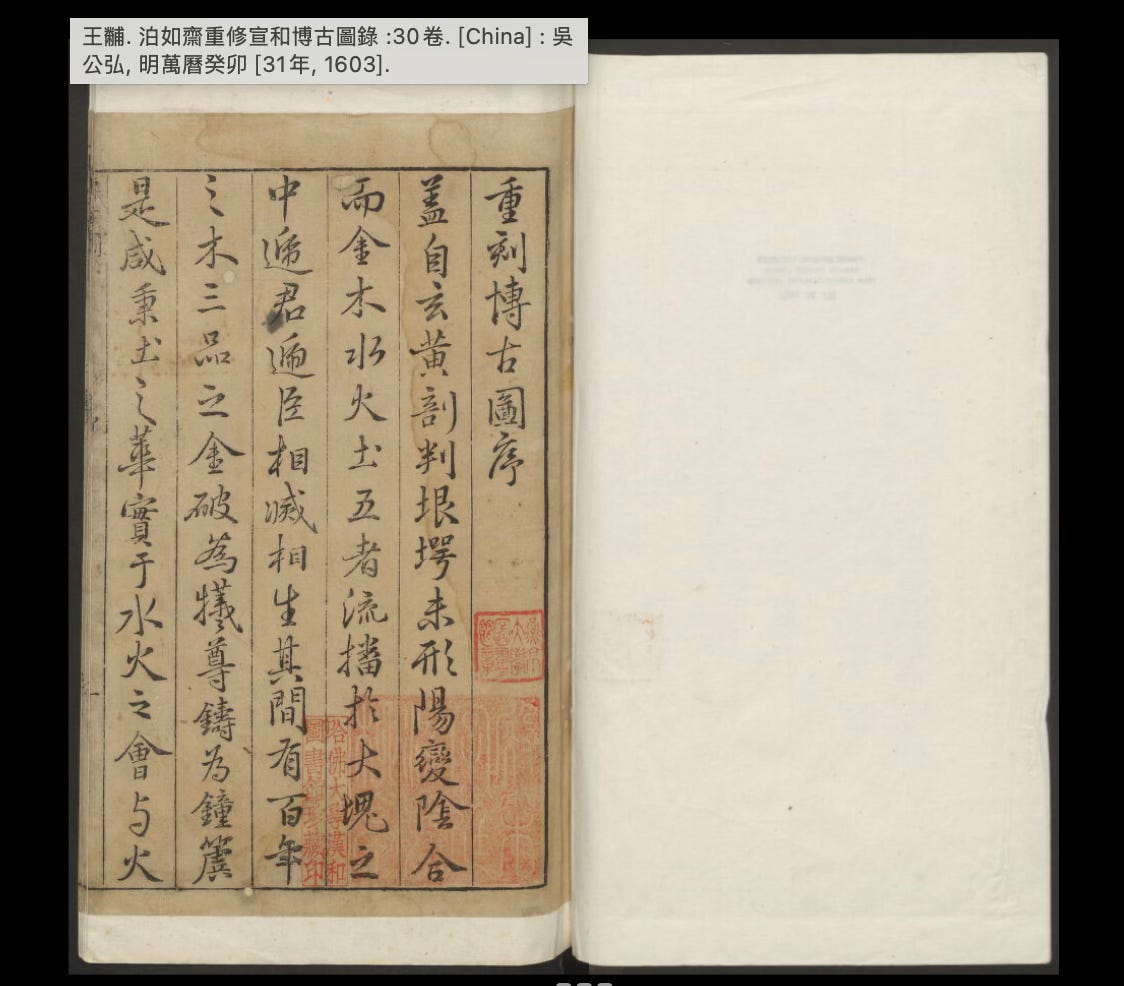 王黼. 泊如齋重修宣和博古圖錄 :30卷. [China] : 吳
公弘, 明萬曆癸卯 [31年, 1603].
重刻博古圖序
蓋自玄黄剖判垠堮未形陽變陰合
而金木水火土五者流播於大塊之
中遞君遞臣相滅相生其間有百年
之木三品之金破為犧尊鑄為鐘簴
是咸秉土之華實于水火之會与火
哈佛大學漢和
圖書館珍藏印